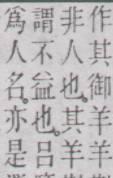 作其御羊羊
非人也。其羊
謂不益也。呂
爲人名。亦是